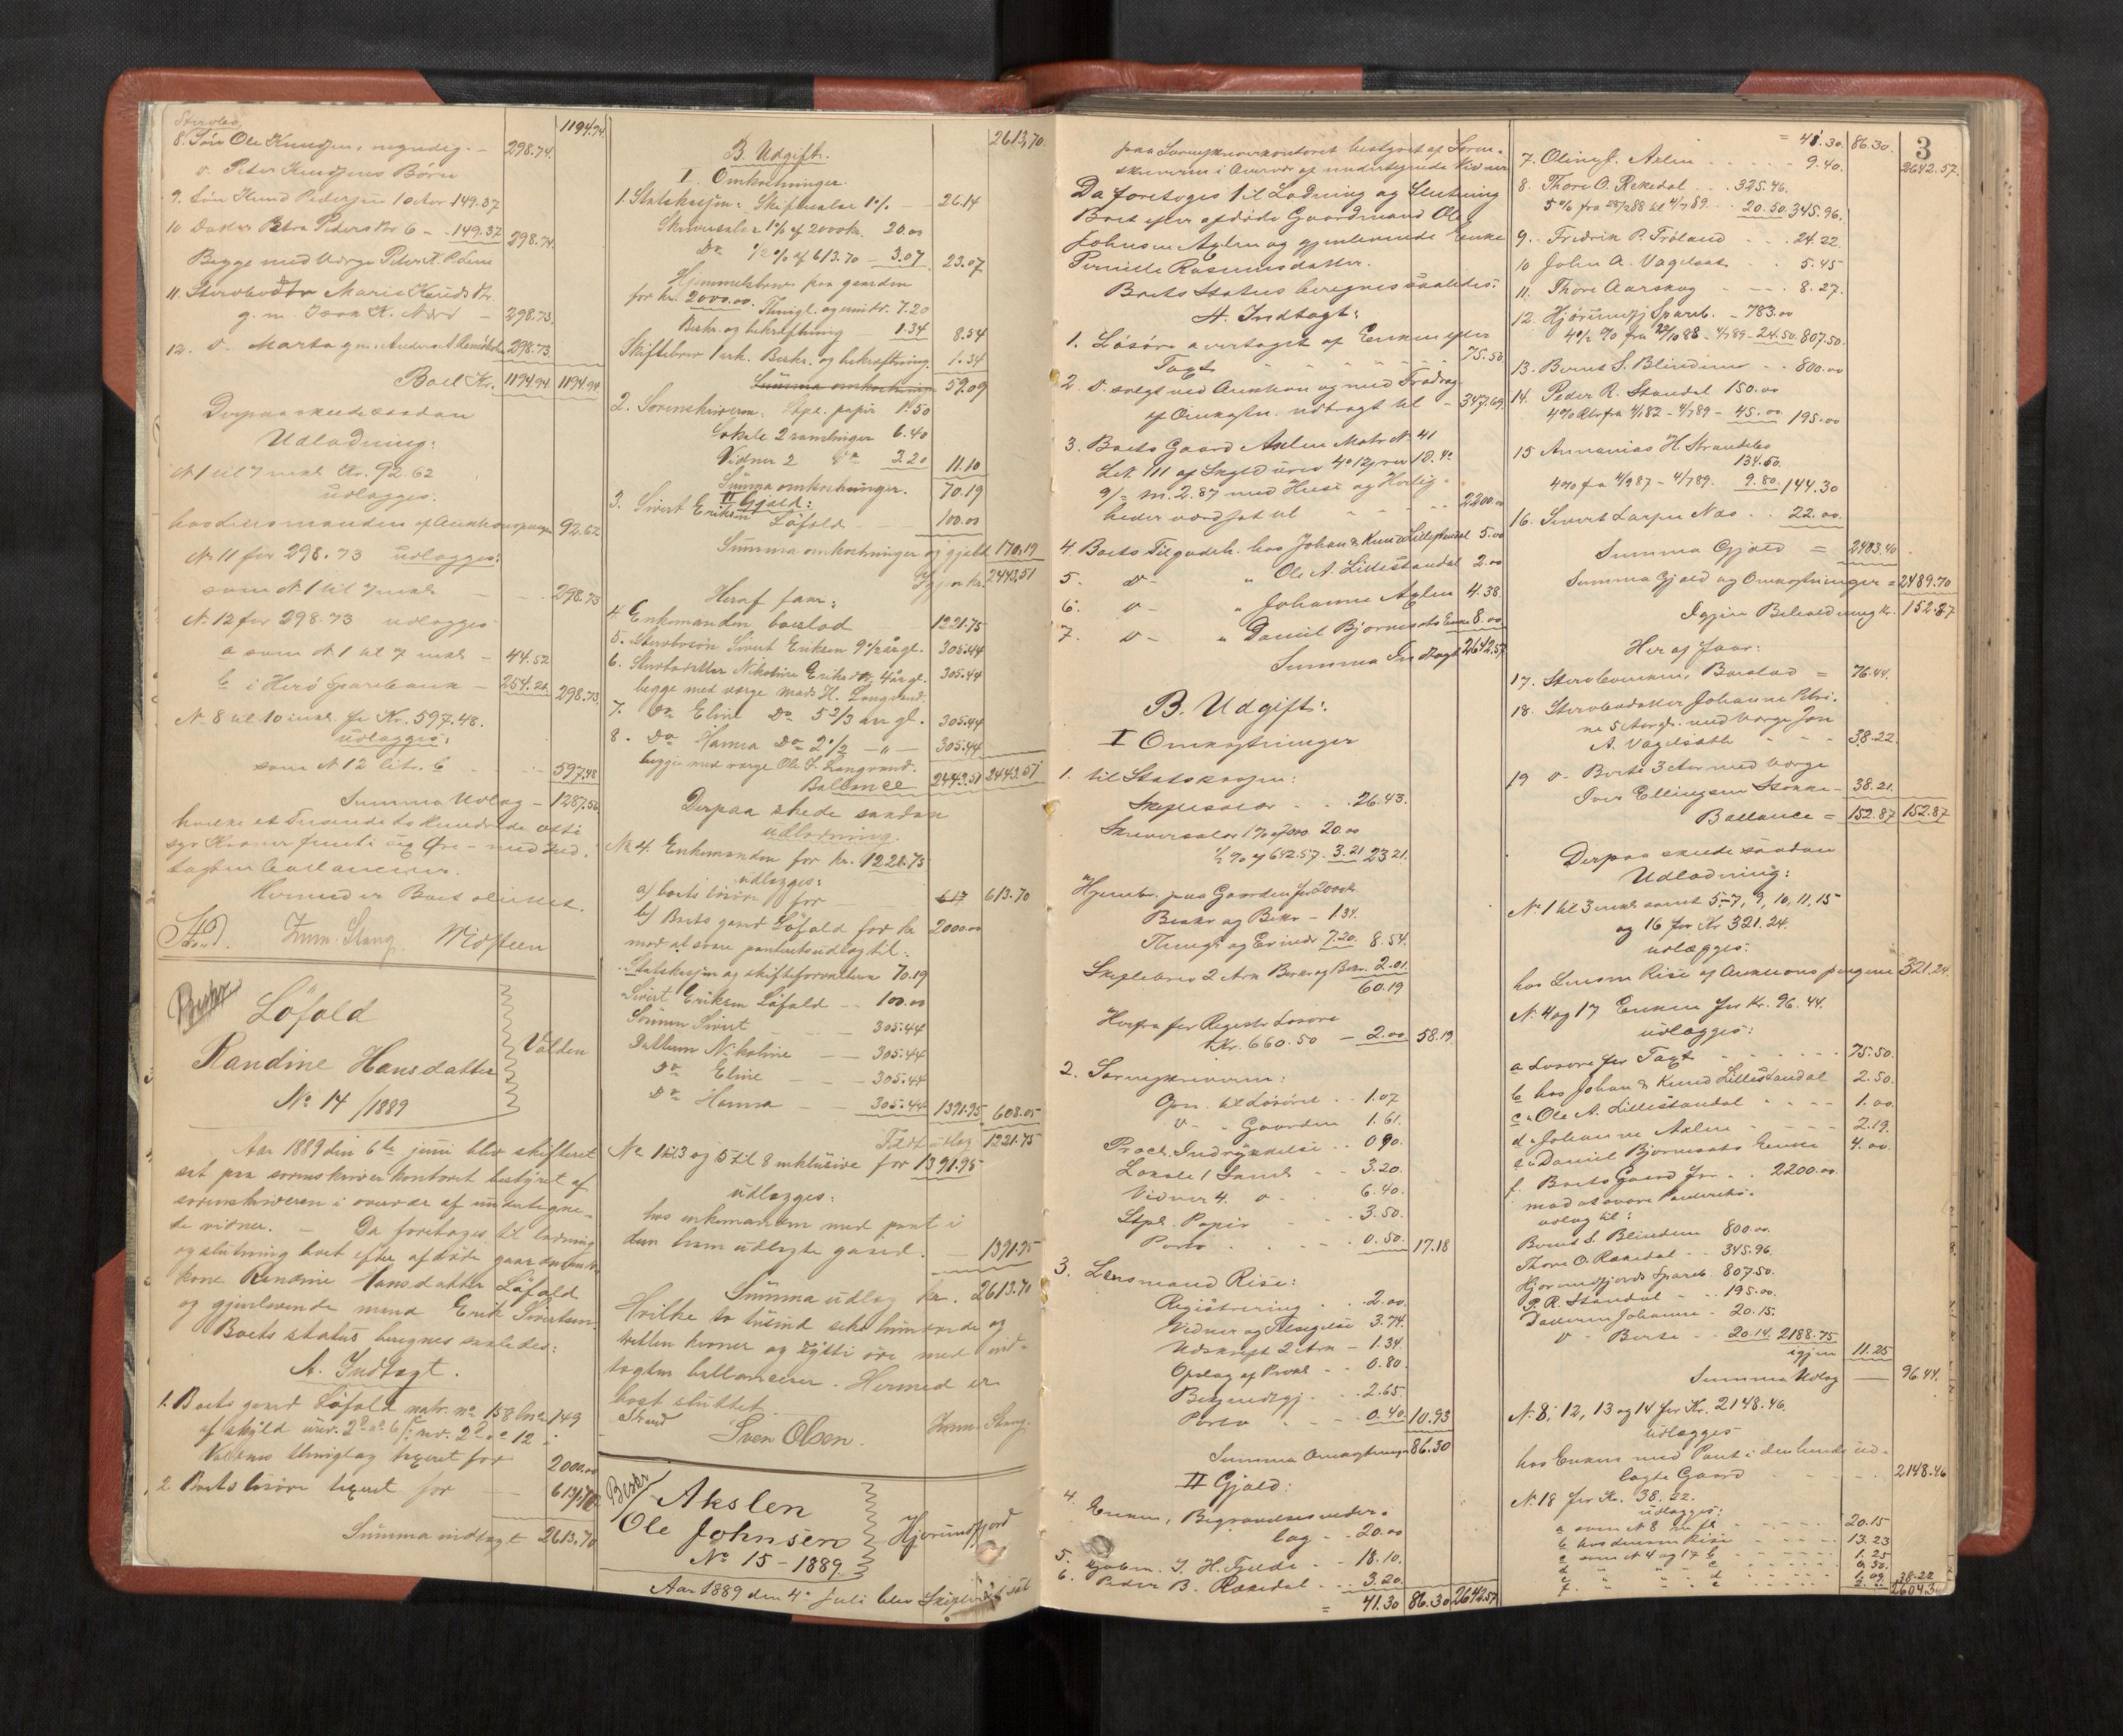 Stervbo
1194.94.
8. Søn Ole Knudsen, myndig. – 298.74.
v. Peter Knudsens Børn
9. Søn Knud Pedersen 10 Aar 149.37
10 Datter Petra Pedersdtr 6 – 149.37 298.74.
Begge med Værge Peter K.
11. Stervbodtr Marie Knudsdtr.
g. m. Isak K. – 298.73.
12. v. Marta g. m. Anders A. 298.73
Boet Kr. 1194.94 1194.94
Derpaa skede saadan
Udlodning:
N. 1 til 7 inkl. Kr. 92.62
udlægges:
hos Lensmanden af Auktionspenge 92.62
N. 11 før 298.73 udlægges:
som N. 1 til 7 inkl – 298.73
N. 12 for 298.73 udlægges
a som N. 1 til 7 inkl – 44.52
b i Herø Sparebank – 254.21 298.73
N. 8 til 10 inkl. for Kr. 597.48.
udlægges:
som N. 12 litr. b – 597.48
Summa Udlæg – 1287.56
hvilke et Tusinde to Hundrede otti
syv Kroner femti sex Øre – med Ind-
tægten ballancerer.
Hermed er Boet sluttet.
Beskr
Löfold
Randine Hansdatter
No 14/1889
Volden
Aar 1889 den 6te juni blev skifteret
sat paa sorenskriverkontoret bestyret af
sorenskriveren i overvær af undertegne-
de vidner. – Da foretoges til lodning
og slutning boet efter afdøde gaardmands
kone Randine Hansdatter Löfold
og gjenlevende mand Erik Sivertsen.
Boets status beregnes saaledes:
A. Indtægt.
1. Boets gaard Löfold matr. no 158 lno 149
af skyld
Voldens thinglag taxeret for 2000.00
2 Boets løsøre taxeret for – 613.70
Summa indtægt 2613.70
2613.70.
B. Udgift.
I. Omkostninger.
1. Statskassen: Skiftesalær 1% – 26.14
Skriversalær 1% af 2000 kr. 20.00
Do 1/2 % af 613.70 – 3.07 23.07
Hjemmelsbrev paa gaarden
for kr. 2000.00. Thingl. og 7.20
Beskr. og bekræftning 1.34 8.54
Skiftebrev 1 ark. Beskr. og bekræftning. 1.34
Summa omkostninger 59.09
2. Sorenskriveren: Stpl. papir 1.50
Lokale 2 samlinger 6.40
Vidner 2 do 3.20 11.10
Summa omkostninger. 70.19
II Gjæld:
3. Sivert Eriksen Löfold – 100.00
Summa omkostninger og gjæld 170.19
Igjen kr. 2443.51
Heraf faar:
4. Enkemanden boeslod 1221.75
5. Stervbosøn Sivert Eriksen 9 1/2 år gl. 305.44
6. Stervbodatter Nikoline Eriksdtr 4 år gl. 305.44
begge med værge Mads H. Langvand.
7. Do Eline Do 5 2/3 år gl. 305.44
8. Do Hanna Do 2 1/2 – " – 305.44
begge med værge Ole S. Langvand.
Balance 2443.51 2443.51
Derpaa skede saadan
udlodning.
No 4. Enkemanden for kr. 1221.75
udlægges:
a) boets løsøre for 617 613.70
b) Boets gaard Löfold for kr 2000.00
mod at svare panterets udlæg til:
Statskassen og skifteforvalteren 70.19
Sivert Eriksen Löfold – 100.00
Sønnen Sivert – 305.44
Datteren Nikoline – 305.44
Do Eline – 305.44
Do Hanna – 305.44 1391.95 608.05
Tildt udlæg 1221.75
No 1 til 3 og 5 til 8 inklusive for 1391.95
udlægges:
hos enkemanden med pant i
den ham udlagte gaard. – 1391.95
Summa udlæg kr. 2613.70
Hvilke to tusind seks hundrede og
tretten kroner og sytti øre med ind-
tægten ballancerer. Hermed er
boet sluttet.
Strand
Sven Olsen.
Beskr
Akslen
Ole Johnsen
No 15 – 1889.
Hjørundfjord
Aar 1889 den 4de Juli blev Skifteret sat
paa Sorenskriverkontoret bestyret af Soren-
skriveren i Overvær af undertegnede Vidner
Da foretoges til Lodning og Slutning
Boet efter afdøde Gaardmand Ole
Johnsen Axlen og gjenlevende Enke
Pernille Rasmusdatter.
Boets Status beregnes saaledes:
A. Indtægt:
1. Løsøre overtaget af Enken efter
Taxt 75.50
2. v. solgt ved Auktion og med Fradrag
af Omkostn. udbragt til – 347.69.
3. Boets Gaard Axlen Matr No. 41
9/– m. 2.87 med Huse og Herlig-
heder værdsat til 2200.00
4 Boets Tilgodeh. hos Johan & Knud Lillestandal 5.00
5. v – " Ole A. Lillestandal 2.00
6. v – " Johanne Axlen 4.38.
7. v – " Daniel Bjørnesets Enke 8.00
Summa Indtægt 2642.57
B. Udgift:
I Omkostninger
1. til Statskassen:
Skiftesalær 26.43.
Skriversalær 1% af 2000 20.00
1/2 % af 642.57 3.21 23.21.
Hjembr. paa Gaarden for 2000 kr
Beskr og Bekr – 1.34.
Thingl. og 7.20. 8.54.
Skiftebrev 2 Ark Beskr og Bekr. 2.01.
60.19
Herfra for Registr Løsøre
Kr. 660.50 – 2.00 58.19
2. Sorenskriveren:
til Løsøret 1.07
v. – Gaarden 1.61.
Procl. Indrykkelse 0.90.
Lokale 1 Saml. 3.20.
Vidner 4. v 6.40.
Stpl. Papir 3.50.
Porto 0.50. 17.18
3. Lensmand Rise:
Registrering 2.00.
Vidner og 3.74.
Udskrift 2 Ark – 1.34.
Opslag af Procl. 0.80.
2.65.
Porto 0.40 10.93
Summa Omkostninger 86.30
II Gjæld:
4. Enken, Begravelsesudlæg 20.00
5. J. H. Fjelde 18.10.
6. Peder B. Rekedal 3.20.
= 41.30 86.30 2642.57
3
= 41.30. 86.30. 2642.57.
7. Axlen 9.40.
8. Thore O. Rekedal 325.46.
5% fra 28/2 88 til 4/7 89. 20.50. 345.96.
9. Fredrik P. Trøland 24.22.
10 John A. Vagelsæt 5.45
11. Thore Aarskog 8.27.
12. Hjørundfj Spareb. – 783.00
4 1/2 % fra 22/10 88 – 4/7 89 – 24.50. 807.50.
13. Bernt S. Blindeim 800.00
14. Peder R. Standal 150.00
– 45.00 195.00
15 Annanias H. Strandabo
134.50.
4% fra 4/9 87 – 4/7 89. 9.80. 144.30
16. Sivert Larsen Næs 22.00.
Summa Gjæld = 2403.40
Summa Gjæld og Omkostninger = 2489.70
Igjen Beholdning k. 152.87
Heraf faar:
17. Stervboenken, Boeslod = 76.44.
18. Stervbodatter Johanne Petri-
ne 5 Aar gl. med Værge Jon
A. Vagelsæth 38.22.
19 v – Berte 3 Aar med Værge
Iver Ellingsen Stokke – 38.21.
Ballance = 152.87 152.87
Derpaa skede saadan
Udlodning:
No. 1 til 3 inkl samt 5–7, 9, 10, 11, 15
og 16 for Kr 321.24.
udlægges:
hos Lensm Rise af Auktionspengene 321.24.
N. 4 og 17 Enken for Kr. 96.44.
udlægges:
a Løsøre for Taxt 75.50.
b hos Johan & Knud Lillestandal 2.50.
c " Ole A. Lillestandal 1.00.
d " Johanne Axlen 2.19.
e " Daniel Bjørnesets Enke 4.00.
f. Boets Gaard for 2200.00
mod at svare Panterets-
udlæg til:
Bernt S. Blindeim 800.00
Thore O. Rekedal 345.96.
Hjørundfjords Spareb. 807.50.
P. R. Standal 195.00.
Datteren Johanne 20.15.
v – Berte 20.14. 2188.75
igjen 11.25
Summa Udlæg 96.44.
N. 8, 12, 13 og 14 for Kr. 2148.46.
udlægges
hos Enken med Pant i den hende ud-
lagte Gaard 2148.46
N. 18 for Kr. 38.22.
udlægges:
a som N 8 20.15
b hos Lensm Rise 13.23
c som N 4 og 17 b 1.25
d " " c 0.50.
e " " d 1.09
f. " " e 2.00 38.22
2604.36